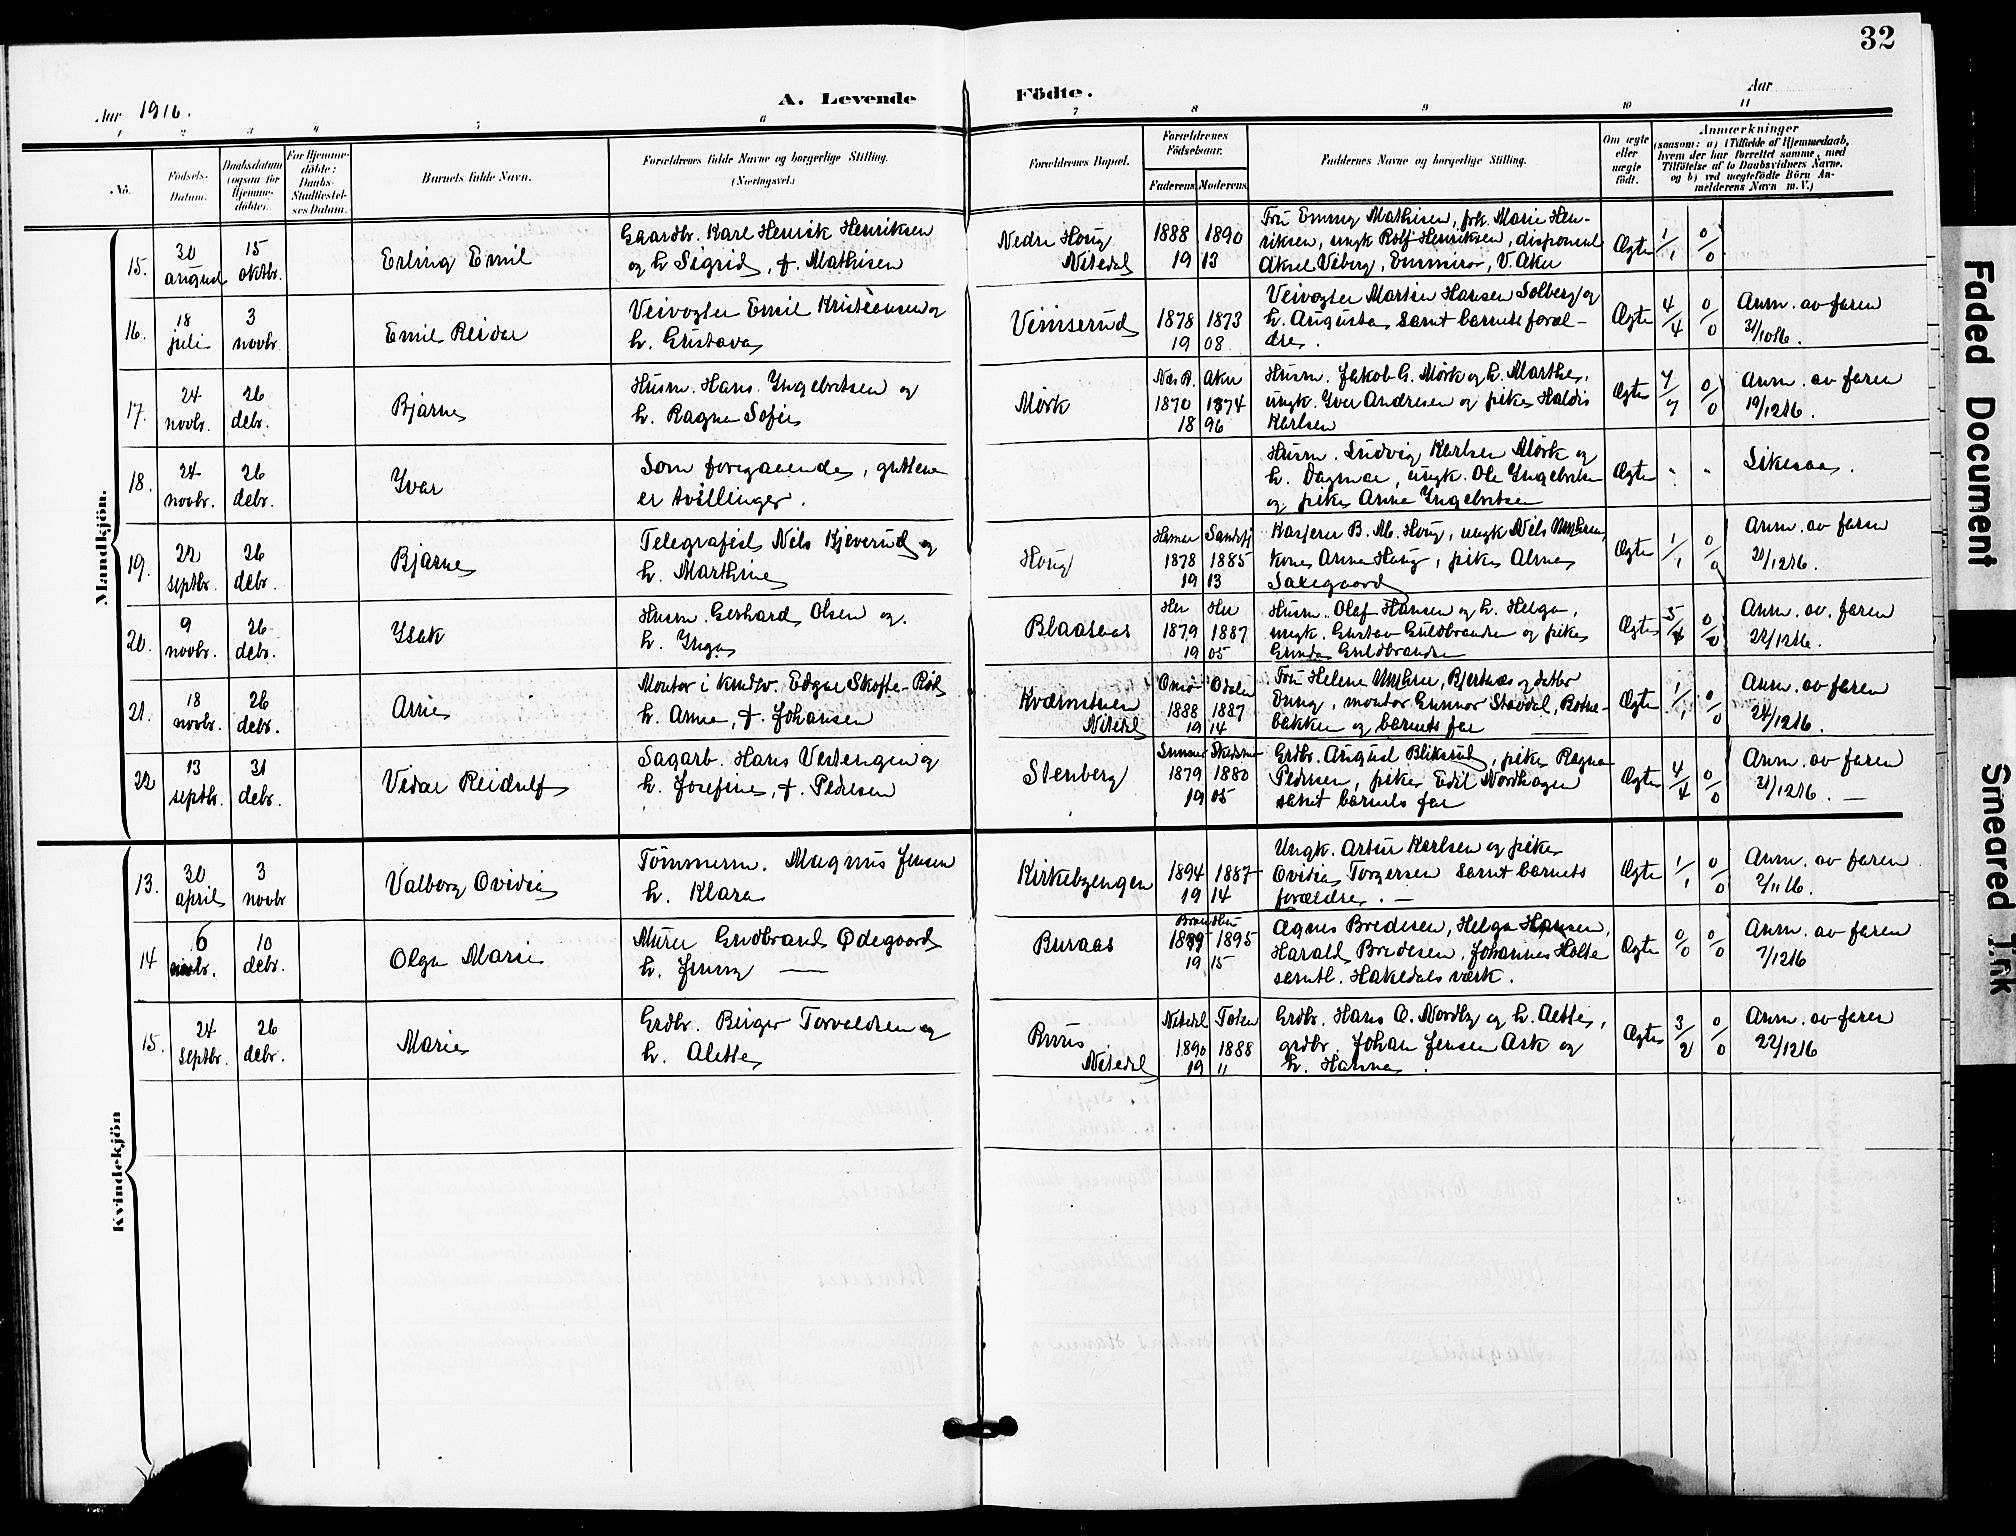 32
Aar 1916.
A. Levende Födte.
Aar
1 2 3 4 5 6 7 8 9 10 11
No.
Födsels-
Datum.
Daabsdatum
(ogsaa for
Hjemme-
döbte).
For Hjemme-
döbte:
Daabs-
Stadfæstel-
ses Datum.
Barnets fulde Navn.
Forældrenes fulde Navne og borgerlige Stilling.
(Næringsvei.)
Forældrenes Bopæl.
Forældrenes
Födselsaar.
Faderens Moderens
Faddernes Navne og borgerlige Stilling.
Om ægte
eller
uægte
født.
Anmærkninger
(saasom: a) i Tilfælde af Hjemmedaab,
hvem der har forrettet samme, med
Tilföielse af to Daabsvidners Navne.
og b) ved uægtefödte Börn An-
melderens Navn m. V.)
Mandkjön.
15.
30
august
15
oktbr.
Erling Emil
Gaardbr. Karl Henrik Henriksen
og h. Sigrid, f. Mathisen
Nedre Houg
Nitedal
1888 1890
19 13
Fru Emmy Mathisen, frk. Marie Hen-
riksen, ungk Rolf Henriksen, disponent
Aksel Viberg, V. Aker
Ægte
1/1
0/0
16.
18
juli
3
novbr.
Emil Reidar
Veivogter Emil Kristiansen og
h. Gustava
Vimserud
1878 1873
19 08
Veivogter Martin Hansen Solberg og
h. Augusta samt barnets foræl-
dre.
Ægte
4/4
0/0
Anm. av faren
31/10 16.
17.
24
novbr.
26
debr.
Bjarne
Husm. Hans Yngebretsen og
h. Ragna Sofie
Mørk
Nes R. Aker
1870 1874
18 96
Husm. Jakob G. Mørk og h. Marthe,
ungk. Yver Andresen og pike Haldis
Karlsen
Ægte
7/7
0/0
Anm. av faren
19/12 16.
18.
24
novbr.
26
debr.
Yvar
Som foregaaende, guttene
er tvillinger.
Husm. Ludvig Karlsen Mørk og
h. Dagmar, ungk. Ole Yngebretsen
og pike Anna Yngebretsen
Ægte
"
"
Likesaa.
19.
22
septbr.
26
debr.
Bjarne
Telegrafist Nils Kjeverud og
h. Marthine
Houg
Hamar Sandefj
1878 1885
19 13
Kasserer B. M. Houg, ungk Nils
kone Anna Houg, pike Alma
Saxegaard
Ægte
1/1
0/0
Anm. av faren
20/12 16.
20.
9
novbr.
26
debr.
Ysak
Husm. Gerhard Olsen og
h. Ynga
Blaasaas
Her Her
1879 1887
19 05
Husm. Olaf Hansen og h. Helga,
ungk. Gustav Guldbrandsen og pike
Gunda Guldbrandsen
Ægte
5/4
0/0
Anm. av. faren
22/12 16.
21.
18
novbr.
26
debr.
Arne
Montør i Krudtv. Edgar Skofte-
h. Anna, f. Johansen
Kværnstuen
Nitedal
Odalen
1888 1887
19 14
Fru Helene Bjertnæs og
montør Gunnar Stavdal,
bakken og barnets far
Ægte
1/1
0/0
Anm. av faren
24/12 16.
22
13
septbr.
31
debr.
Vidar Reidulf
Sagarb. Hans Vestengen og
h. Josefine, f. Pedersen
Stenberg
Skedsmo
1879 1880
19 05
Grdbr. August Bliksrud, pike Ragna
Pedersen, pike Edit Nordhagen
samt barnets far
Ægte
4/4
0/0
Anm. av faren
31/12 16.
Kvindekjön
13.
30
april
3
novbr
Valborg Ovidia
Tömmerm. Magnus Jensen
h. Klara
Kirkebyengen
1894 1887
19 14
Ungk. Artur Karlsen og pike
Ovidia Torgersen samt barnets
forældre.
Ægte
1/1
0/0
Anm. av faren
2/11 16.
14
6
10
debr.
Olga Marie
Murer Gudbrand Ødegaard
h. Jenny
Buraas
1889 1895
19 15
Agnes Bredesen, Helga Hansen,
Harald Bredesen, Johannes Holte
samtl. Hakedals værk.
Ægte
0/0
0/0
Anm. av faren
7/12 16
15.
24
Septbr.
26
debr.
Marie
Grdbr. Birger Torvaldsen og
h. Alette
Ruus
Nitedal
Nitedal Toten
1890 1888
19 11
Grdbr. Hans O. Nordby og h. Alette,
grdbr. Johan Jensen Ask og
h. Hanna.
Ægte
3/2
0/0
Anm. av faren
22/12 16
Faded Document
Smeared Ink